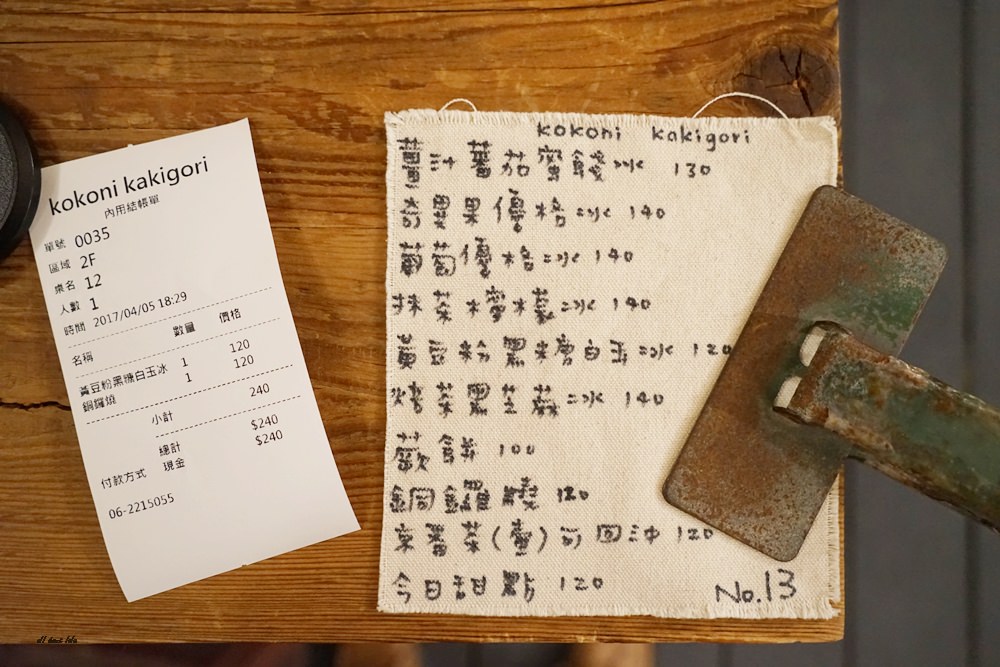 kokoni kakigori
內用結帳單
單號 0035
區域 2F
桌名 12
人數 1
時間 2017/04/05 18:29
名稱 數量 價格
黃豆粉黑糖白玉冰 1 120
銅鑼燒 1 120
小計 240
總計 $240
付款方式 現金 $240
06-2215055
kokoni kakigori
薑汁蕃茄蜜餞冰 130
奇異果優格冰 140
葡萄優格冰 140
抹茶檸檬冰 140
黃豆粉黑糖白玉冰 120
焙茶黑芝麻冰 140
蕨餅 100
銅鑼燒 120
東番茶(壺)可回沖 120
今日甜點 120
No.13